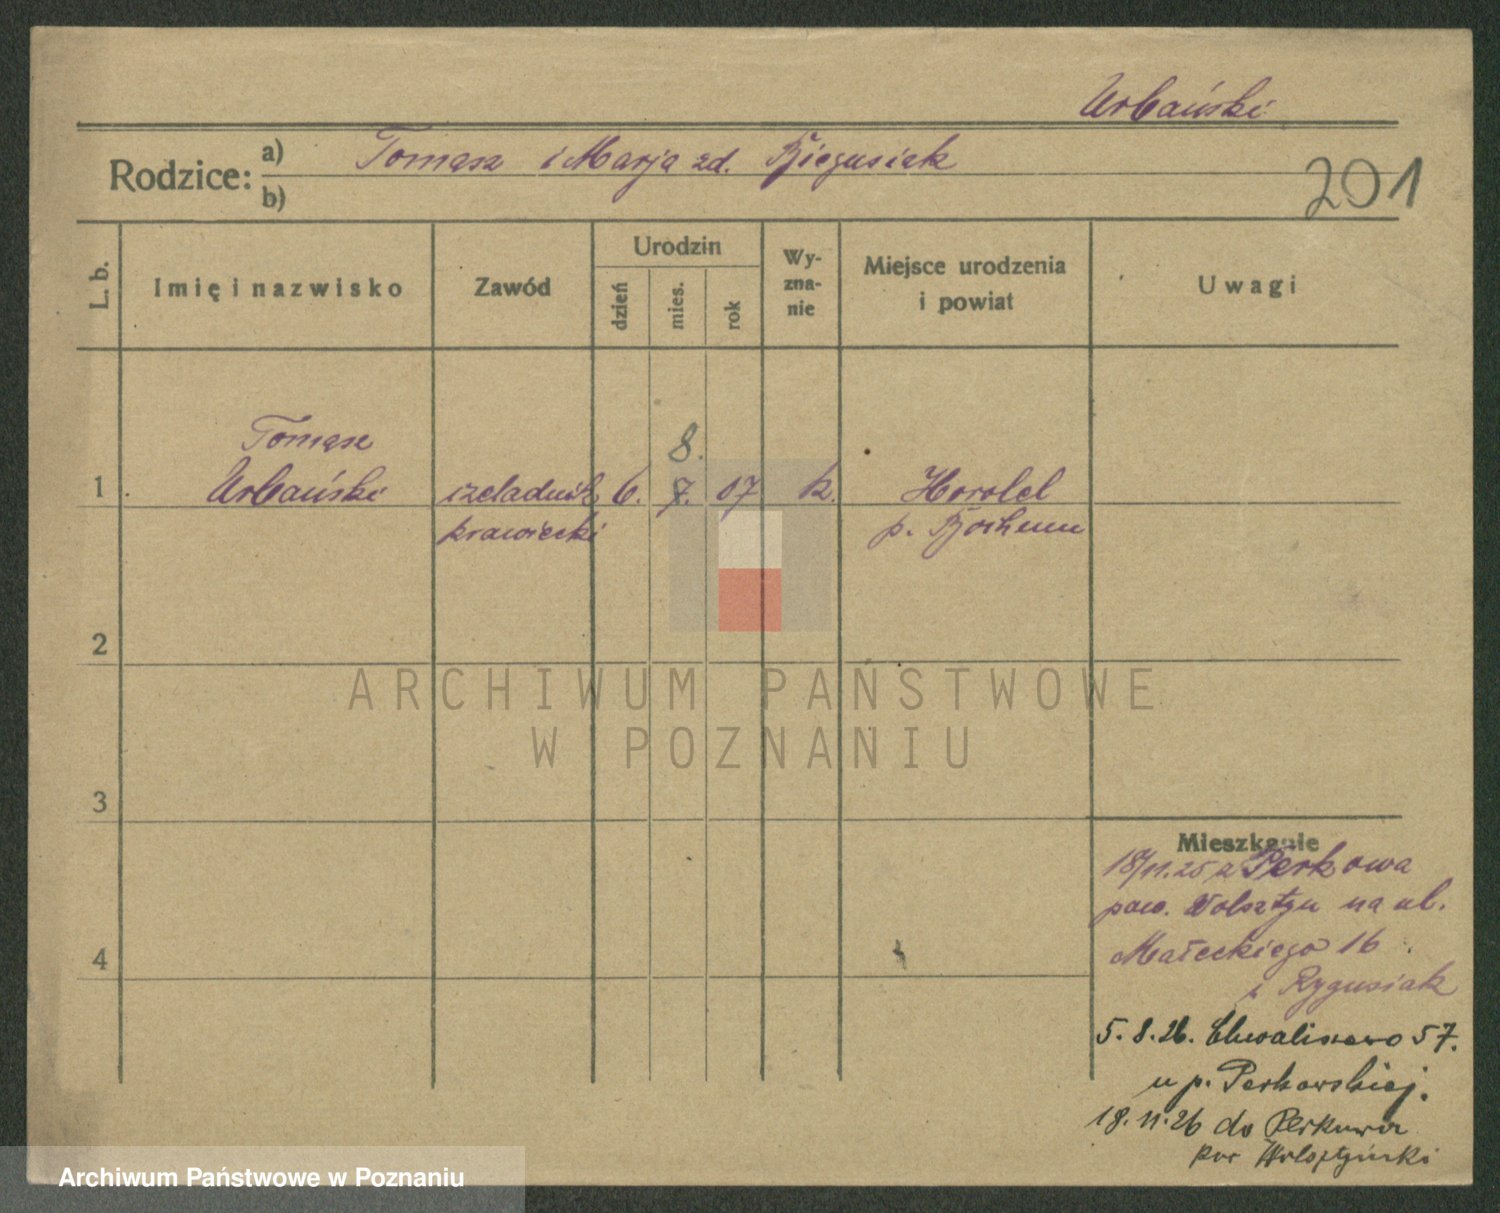 Urbański
Rodzice:
a) Tomasz i Marja zd. Biegusiak
b)
201
L. b.
Imię i nazwisko
Zawód
Urodzin
dzień
mies.
rok
Wy-
zna-
nie
Miejsce urodzenia
i powiat
Uwagi
Tomasz
8.
1. Urbański czeladnik 6. 7. 07 k.
krawiecki
p. Bochum
2
ARCHIWUM PAŃSTWOWE
W POZNANIU
3
Mieszkanie
18/11.25 z Perkowa
pow. Wolsztyn na ul.
Małeckiego 16
Rygusiak
4
5.8.26. Chwaliszewo 57.
u p. Perkowskiej.
18.11.26 do Perkowa
pow Wolsztyński
Archiwum Państwowe w Poznaniu